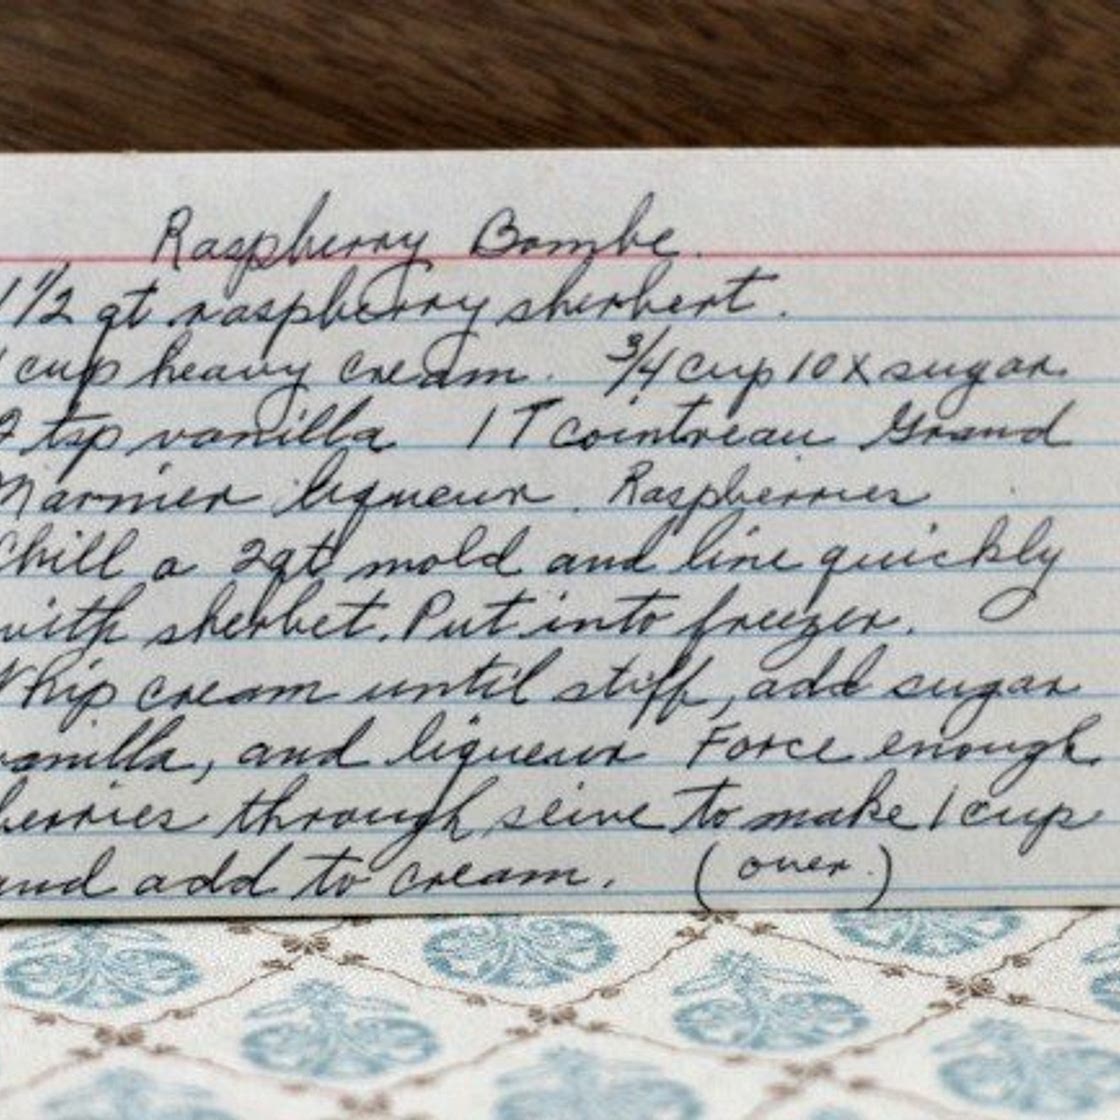 Raspberry Bombe.
1 1/2 qt raspberry sherbert.
1 cup heavy cream. 3/4 cup 10X sugar.
2 tsp vanilla 1 T Cointreau Grand
Marnier liqueur. Raspberries
Chill a 2qt mold and line quickly
with sherbet. Put into freezer.
Whip cream until stiff, add sugar
vanilla, and liqueur Force enough
berries through seive to make 1 cup
and add to cream. (over.)